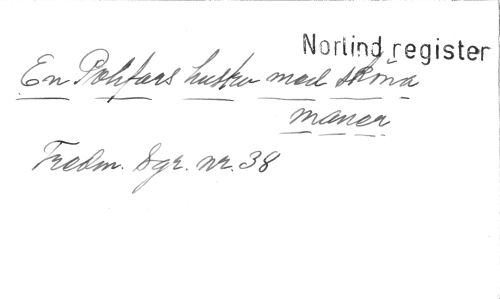 Norlind register
En Potifars hustru med sköna
maner
Fredm. Sgr. nr. 38